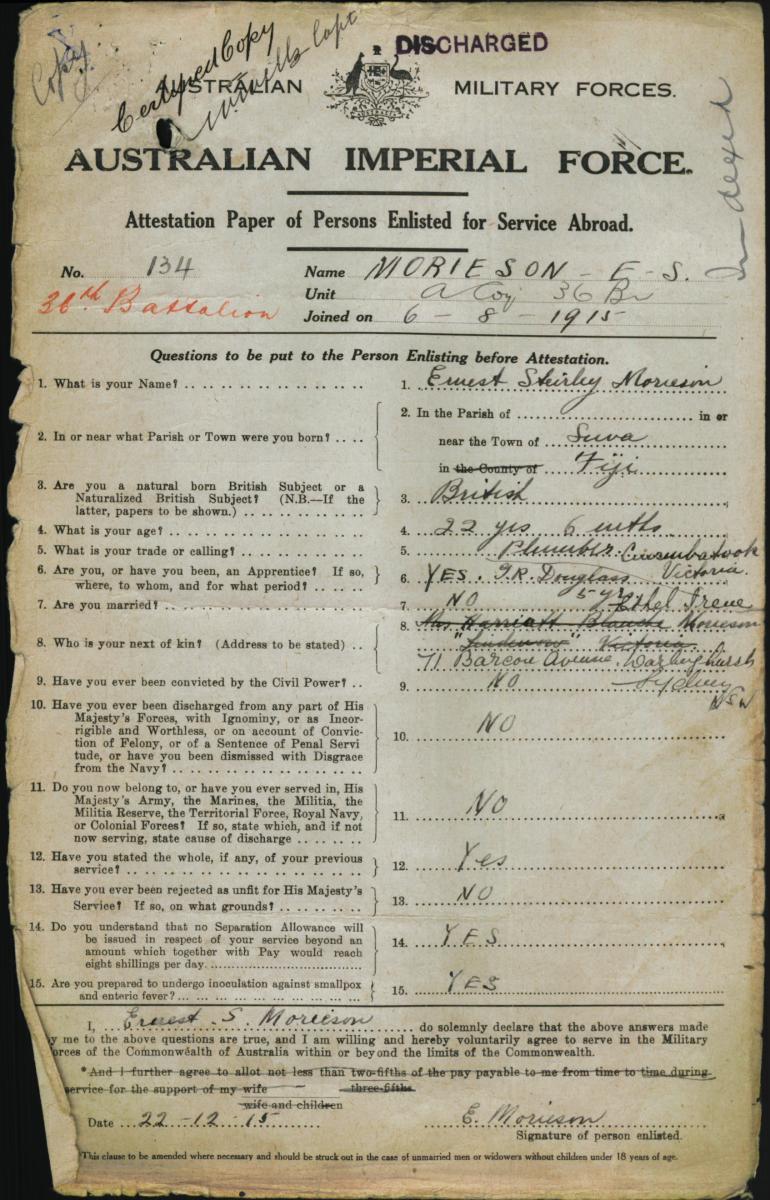 Copy
Certified Copy
Capt
DISCHARGED
AUSTRALIAN MILITARY FORCES.
AUSTRALIAN IMPERIAL FORCE.
Indexed
Attestation Paper of Persons Enlisted for Service Abroad.
No. 134 Name MORIESON - E - S.
36th Battalion Unit A Coy 36 Bn
Joined on 6 - 8 - 1915
Questions to be put to the Person Enlisting before Attestation.
1. What is your Name? 1. Ernest Stirley Morieson
2. In or near what Parish or Town were you born? 2. In the Parish of in or
near the Town of Suva
in the County of Fiji
3. Are you a natural born British Subject or a
Naturalized British Subject? (N.B.—If the
latter, papers to be shown.) 3. British
4. What is your age? 4. 22 yrs 6 mths
5. What is your trade or calling? 5. Plumber
6. Are you, or have you been, an Apprentice? If so,
where, to whom, and for what period? 6. YES. J.R. Douglass Victoria.
5 yrs
7. Are you married? 7. NO
Ethel Irene
8. Who is your next of kin? (Address to be stated) 8. Mrs Harriatt Blanche Morieson
Victoria
71 Barcom Avenue. Darlinghurst
Sydney
NSW
9. Have you ever been convicted by the Civil Power? 9. NO
10. Have you ever been discharged from any part of His
Majesty's Forces, with Ignominy, or as Incor-
rigible and Worthless, or on account of Convic-
tion of Felony, or of a Sentence of Penal Servi
tude, or have you been dismissed with Disgrace
from the Navy? 10. NO
11. Do you now belong to, or have you ever served in, His
Majesty's Army, the Marines, the Militia, the
Militia Reserve, the Territorial Force, Royal Navy,
or Colonial Forces? If so, state which, and if not
now serving, state cause of discharge 11. NO
12. Have you stated the whole, if any, of your previous
service? 12. Yes
13. Have you ever been rejected as unfit for His Majesty's
Service? If so, on what grounds? 13. NO
14. Do you understand that no Separation Allowance will
be issued in respect of your service beyond an
amount which together with Pay would reach
eight shillings per day. 14. YES
15. Are you prepared to undergo inoculation against smallpox
and enteric fever? 15. YES
I, Ernest S. Morieson do solemnly declare that the above answers made
y me to the above questions are true, and I am willing and hereby voluntarily agree to serve in the Military
orces of the Commonwealth of Australia within or beyond the limits of the Commonwealth.
*And I further agree to allot not less than two-fifths of the pay payable to me from time to time during
three-fifths
service for the support of my wife
wife and children
Date 22-12-15 E. Morieson
Signature of person enlisted.
*This clause to be amended where necessary and should be struck out in the case of unmarried men or widowers without children under 18 years of age.